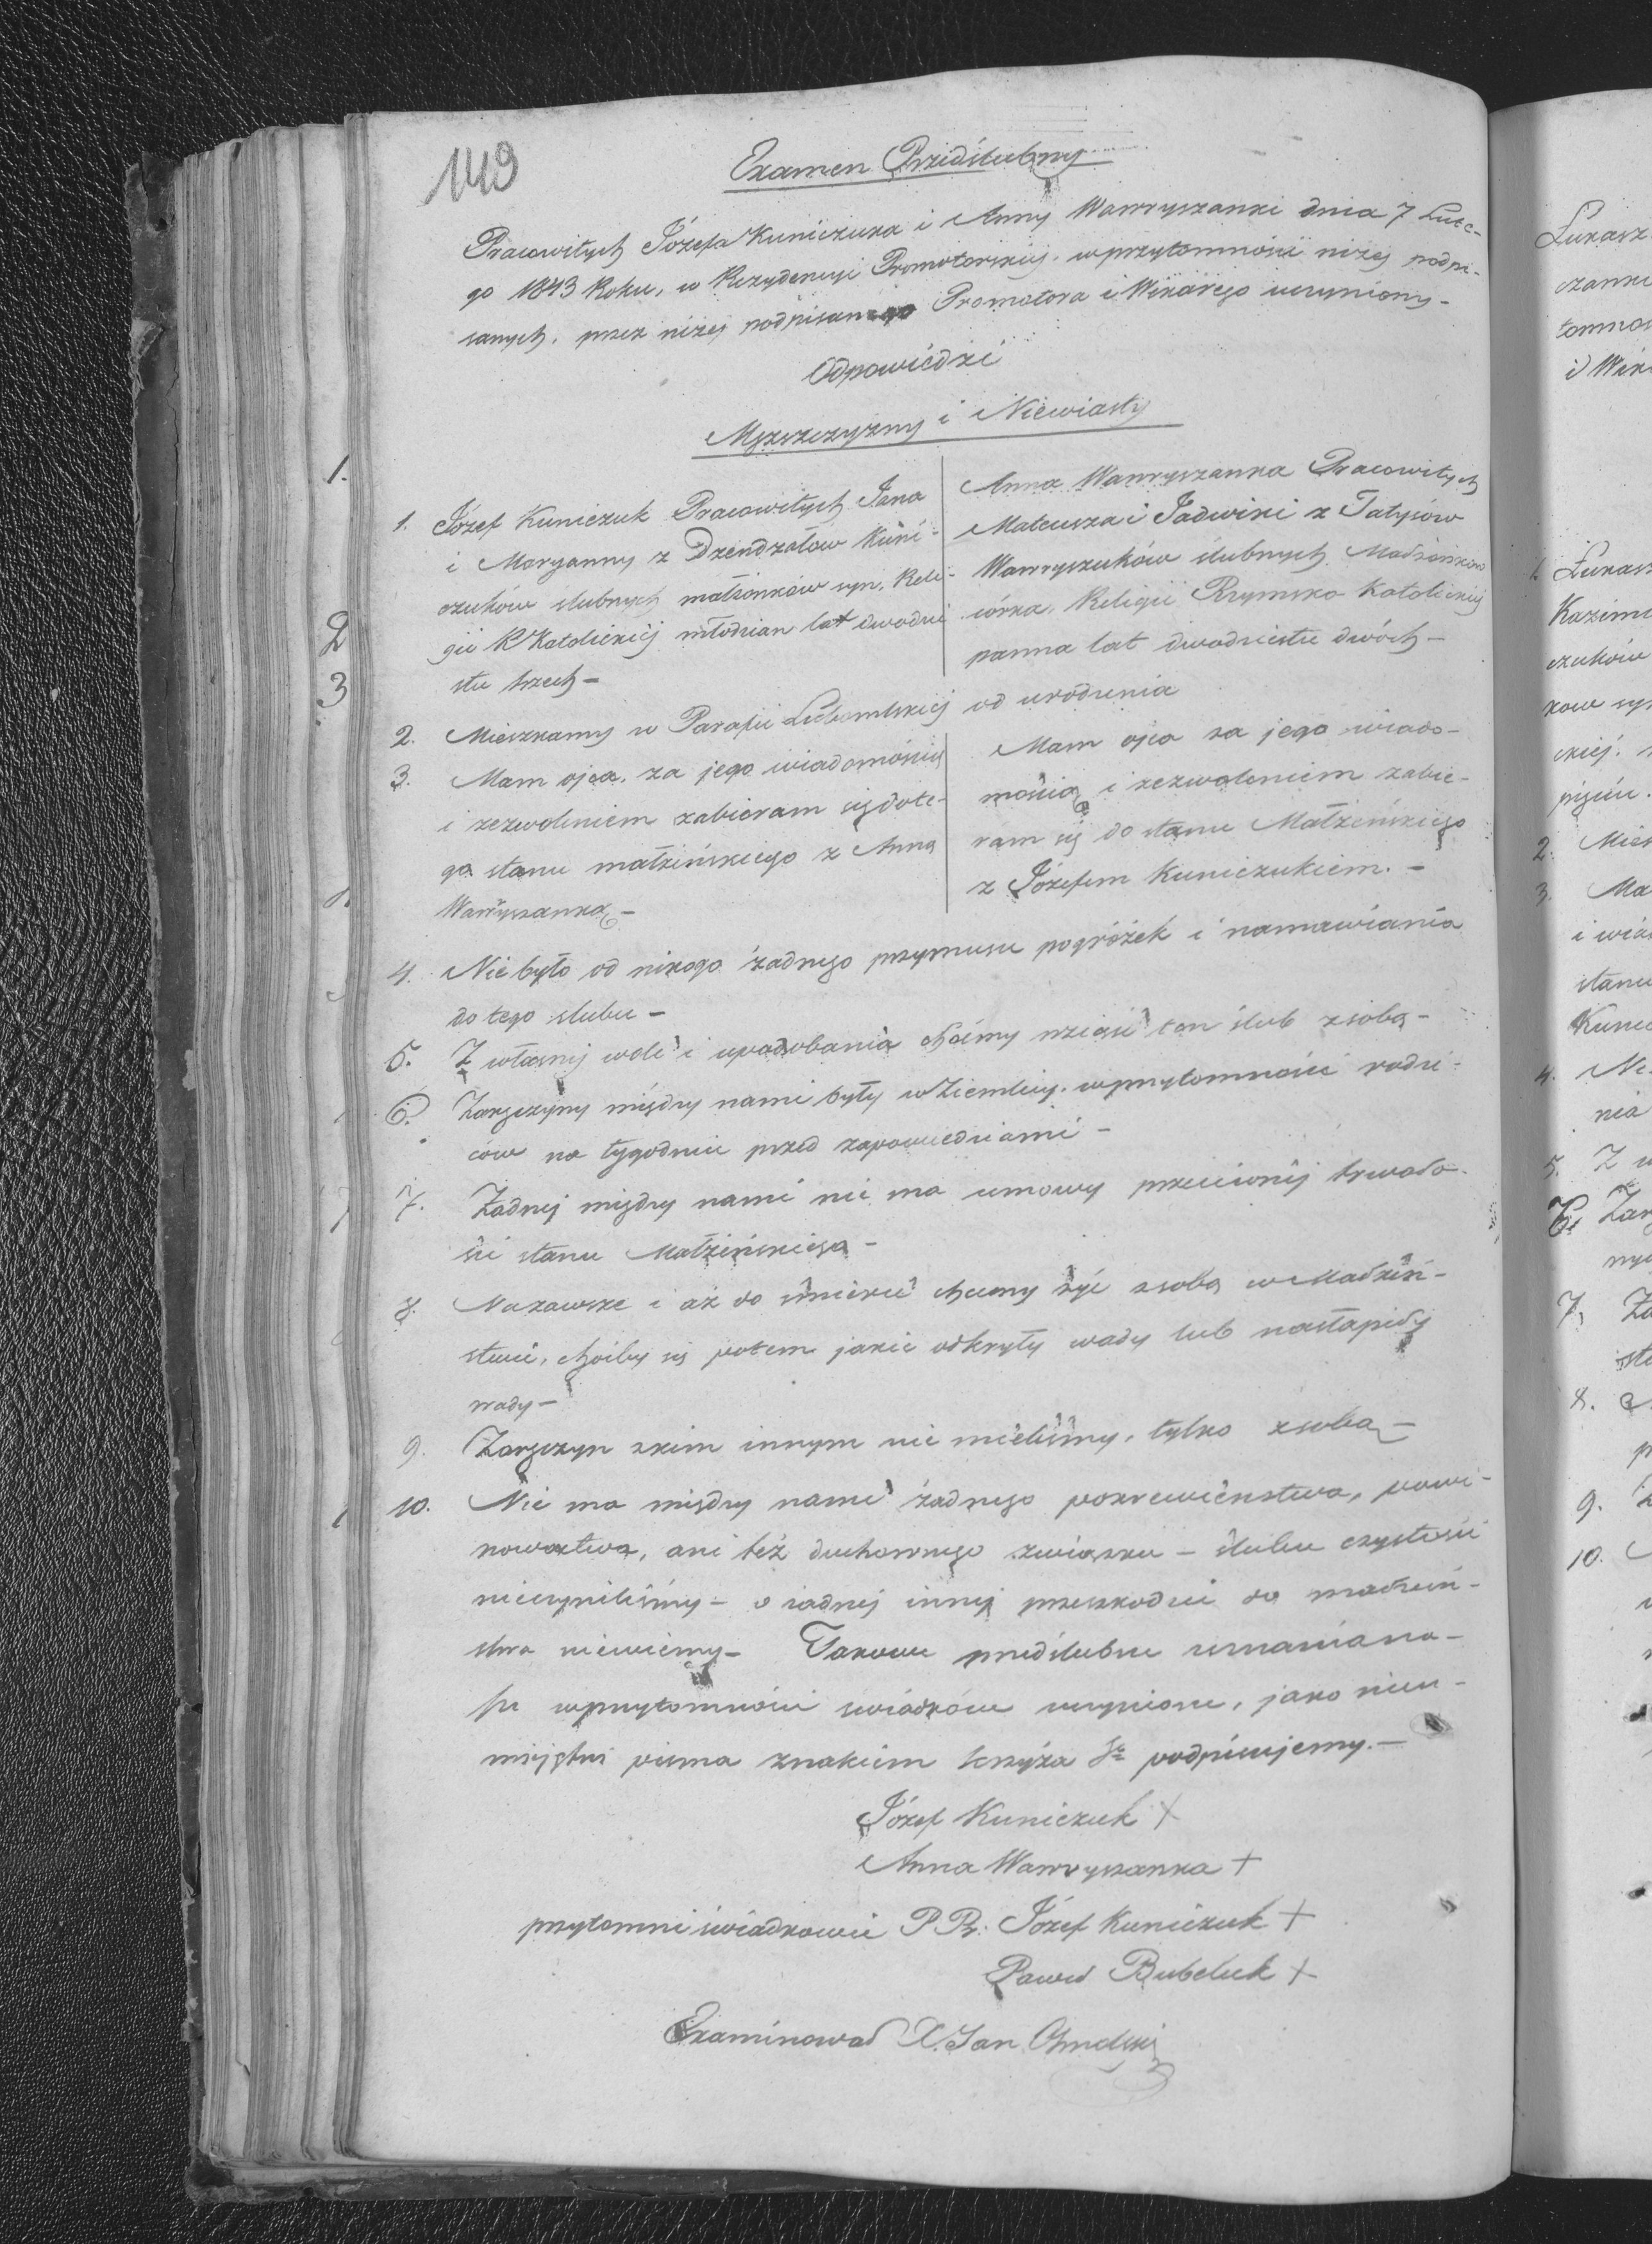 149
Examen Przedślubny
Pracowitych Józefa Kuniczuka i Anny Wawryszanki dnia 7 Lute-
go 1843 Roku, w Rezydencyi Promotorskiej, w przytomności niżej podpi-
sanych, przez niżej podpisanego Promotora i Wikarego uczyniony-
Odpowiedzi
Męszczyzny i Niewiasty
1. Józef Kuniczuk Pracowitych Jana
i Maryanny z Dzendzałow Kuni-
czuków slubnych małżonków syn, Reli-
gii R Katolickiej młodzian lat dwodzie
stu trzech-
Anna Wawryszanka Pracowitych
Mateusza i Jadwiki z Tatysów
Wawryszuków slubnych Małżonków
córka, Religii Rzymsko Katolickiej
panna lat dwadziestu dwóch-
2. Mieszkamy w Parafii Lubomlskiej od urodzenia
3. Mam ojca, za jego wiadomością
i zezwoleniem zabieram się do te-
go stanu małżeńskiego z Anną
Wawryszanką-
Mam ojca za jego wiado-
mością i zezwoleniem zabie-
ram się do stanu Małżeńskiego
z Józefem Kuniczukiem.-
4. Nie było od nikogo żadnego przymusu pogróżek i namawiania
do tego slubu-
5. Z własnej woli i upodobania chcemy wziąść ten ślub z sobą-
6. Zaręczyny między nami były w Ziemlicy, w przytomności rodzi-
ców na tygodniu przed zapowiedziami-
7. Żadnej między nami nie ma umowy przeciwnej trwało-
ści stanu Małżeńskiego-
8. Nazawsze i aż do śmierci chcemy żyć z sobą w Małżeń-
stwie, choćby się potem jakie odkryły wady lub nastąpiły
wady-
9. Zaręczyn z kim innym nie mieliśmy, tylko z sobą-
10. Nie ma między nami żadnego pokrewieństwa, powi-
nowactwa, ani też duchownego związku - slubu czystości
nieczyniliśmy- o żadnej innej przeszkodzie do małżeń-
stwa niewiemy- Takowe przedślubne zeznania na-
sze w przytomności swiadków uczynione, jako nieu-
miejętni pisma znakiem krzyża Sº podpisujemy.-
Józef Kuniczuk +
Anna Wawryszanka +
przytomni świadkowie P Pr. Józef Kuniczuk +
Paweł Bubeluk +
Examinował X. Jan Chmelski